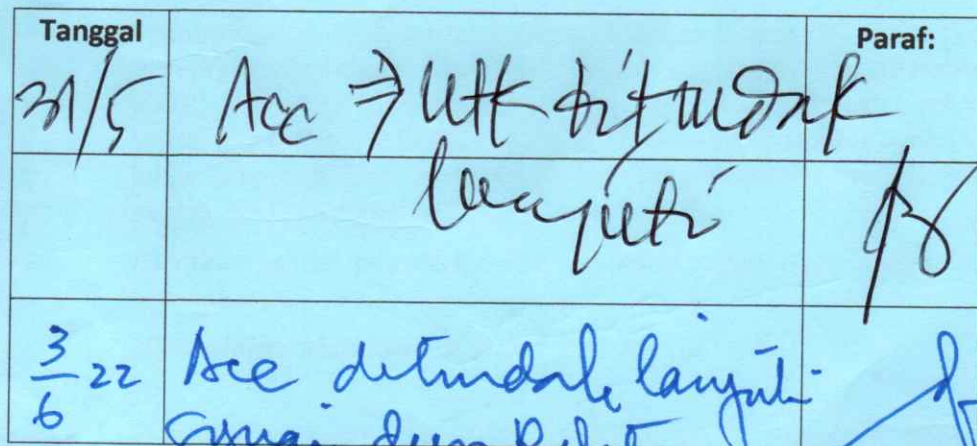 Tanggal Paraf:
31/5 Acc ⇒ Utk ditindak
lanjuti
3/6 22 Acc ditindak lanjuti
sesuai